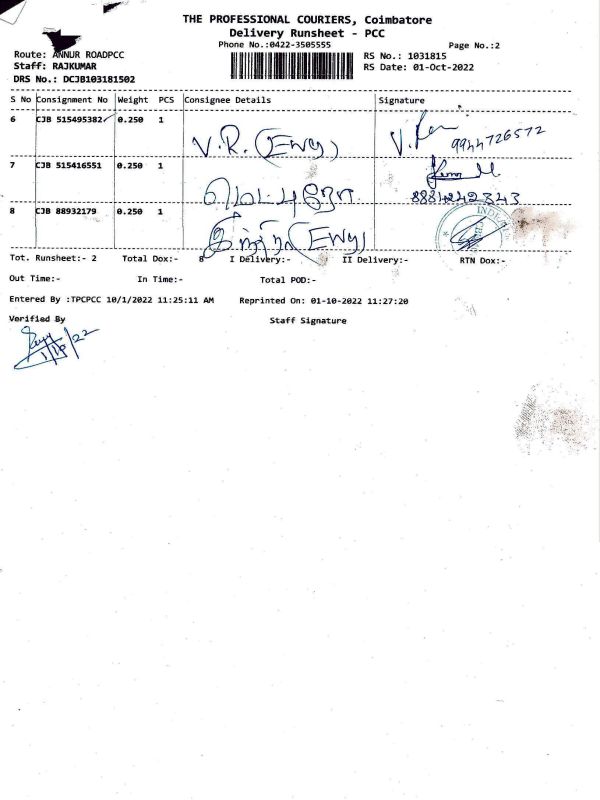 THE PROFESSIONAL COURIERS, Coimbatore
Delivery Runsheet - PCC
Phone No.:0422-3505555
Page No.:2
Route: ANNUR ROADPCC
RS No.: 1031815
Staff: RAJKUMAR
RS Date: 01-Oct-2022
DRS No.: DCJB103181502
S No Consignment No Weight PCS Consignee Details Signature
6 CJB 515495382 0.250 1 V.R. (Ewy) 9944726572
7 CJB 515416551 0.250 1
8 CJB 88932179 0.250 1 (Ewy)
Tot. Runsheet:- 2 Total Dox:- 8 I Delivery:- II Delivery:- RTN Dox:-
Out Time:- In Time:- Total POD:-
Entered By :TPCPCC 10/1/2022 11:25:11 AM Reprinted On: 01-10-2022 11:27:20
Verified By Staff Signature